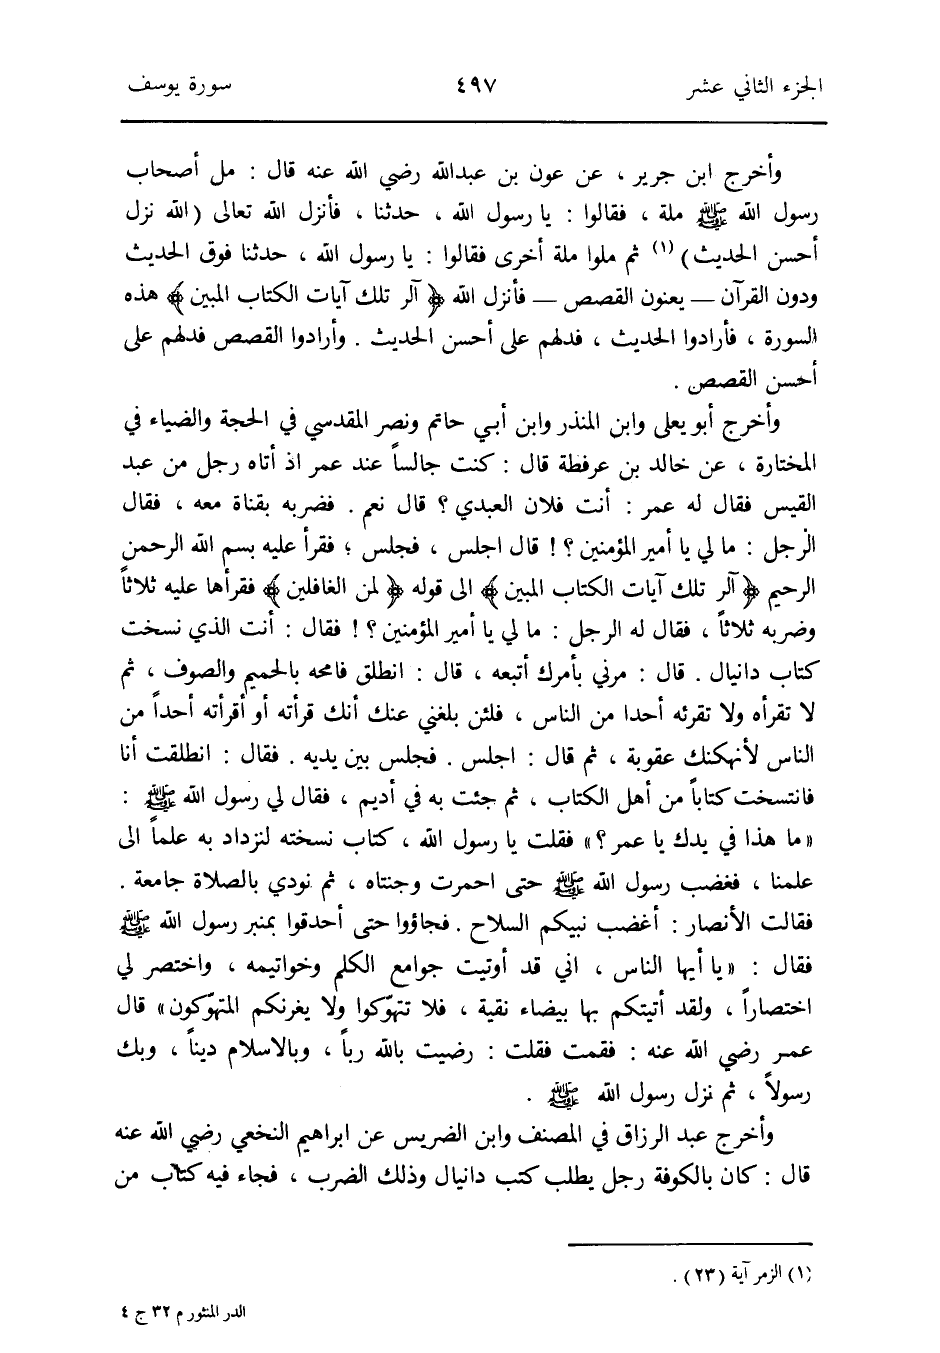 الجزء الثاني عشر ٤٩٧ سورة يوسف
وأخرج ابن جرير ، عن عون بن عبدالله رضي الله عنه قال : مل أصحاب
رسول الله ﷺ ملة ، فقالوا : يا رسول الله ، حدثنا ، فأنزل الله تعالى (الله نزل
أحسن الحديث) (١) ثم ملوا ملة أخرى فقالوا : يا رسول الله ، حدثنا فوق الحديث
ودون القرآن — يعنون القصص — فأنزل الله ﴿ آلر تلك آيات الكتاب المبين ﴾ هذه
السورة ، فأرادوا الحديث ، فدلهم على أحسن الحديث . وأرادوا القصص فدلهم على
أحسن القصص .
وأخرج أبو يعلى وابن المنذر وابن أبي حاتم ونصر المقدسي في الحجة والضياء في
المختارة ، عن خالد بن عرفطة قال : كنت جالساً عند عمر اذ أتاه رجل من عبد
القيس فقال له عمر : أنت فلان العبدي ؟ قال نعم . فضربه بقناة معه ، فقال
الرجل : ما لي يا أمير المؤمنين ؟ ! قال اجلس ، فجلس ؛ فقرأ عليه بسم الله الرحمن
الرحيم ﴿ آلر تلك آيات الكتاب المبين ﴾ الى قوله ﴿ لمن الغافلين ﴾ فقرأها عليه ثلاثاً
وضربه ثلاثاً ، فقال له الرجل : ما لي يا أمير المؤمنين ؟ ! فقال : أنت الذي نسخت
كتاب دانيال . قال : مرني بأمرك أتبعه ، قال : انطلق فامحه بالحميم والصوف ، ثم
لا تقرأه ولا تقرئه أحدا من الناس ، فلئن بلغني عنك أنك قرأته أو أقرأته أحداً من
الناس لأنهكنك عقوبة ، ثم قال : اجلس . فجلس بين يديه . فقال : انطلقت أنا
فانتسخت كتاباً من أهل الكتاب ، ثم جئت به في أديم ، فقال لي رسول الله ﷺ :
«ما هذا في يدك يا عمر ؟» فقلت يا رسول الله ، كتاب نسخته لنزداد به علماً الى
علمنا ، فغضب رسول الله ﷺ حتى احمرت وجنتاه ، ثم نودي بالصلاة جامعة .
فقالت الأنصار : أغضب نبيكم السلاح . فجاؤوا حتى أحدقوا بمنبر رسول الله ﷺ
فقال : «يا أيها الناس ، اني قد أوتيت جوامع الكلم وخواتيمه ، واختصر لي
اختصاراً ، ولقد أتيتكم بها بيضاء نقية ، فلا تتهوّكوا ولا يغرنكم المتهوّكون» قال
عمر رضي الله عنه : فقمت فقلت : رضيت بالله رباً ، وبالاسلام ديناً ، وبك
رسولاً ، ثم نزل رسول الله ﷺ .
وأخرج عبد الرزاق في المصنف وابن الضريس عن ابراهيم النخعي رضي الله عنه
قال : كان بالكوفة رجل يطلب كتب دانيال وذلك الضرب ، فجاء فيه كتاب من
(١) الزمر آية (٢٣) .
الدر المنثور م ٣٢ ج ٤